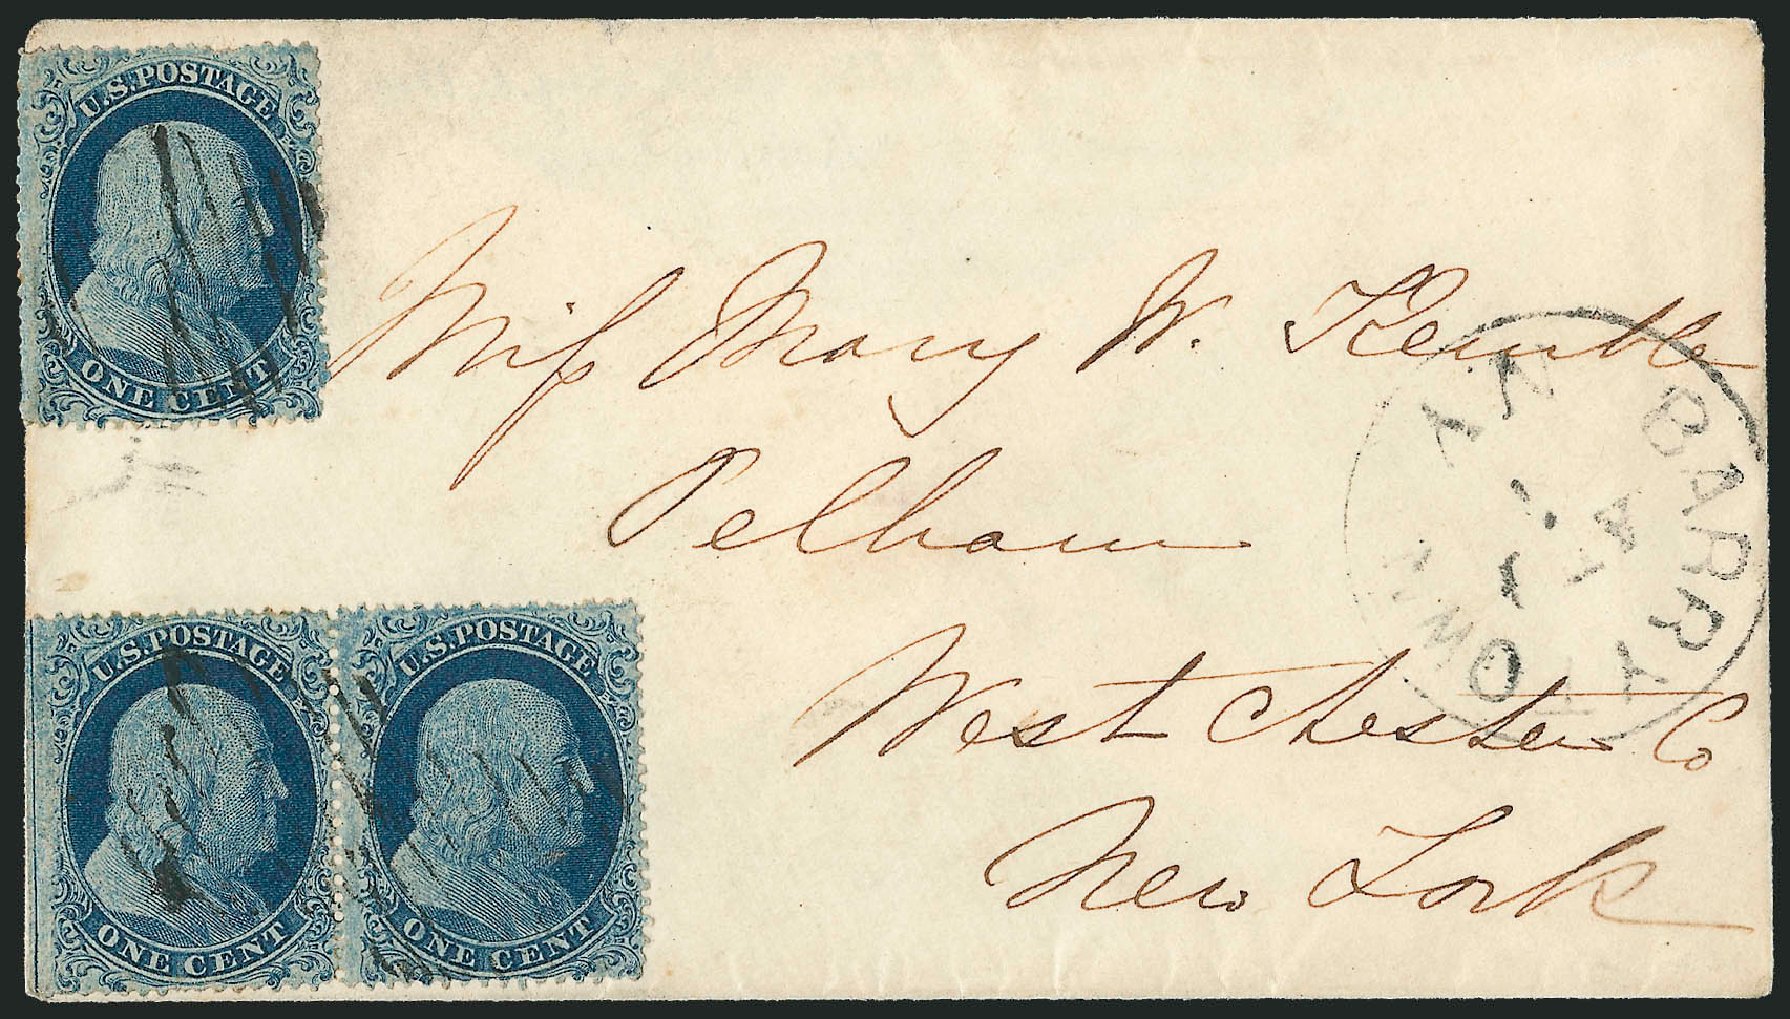 U.S. POSTAGE
ONE CENT
Miſs Mary W. Kemble
Pelham
West Chester Co
New York
BARRYTOWN N.Y.
U.S. POSTAGE
ONE CENT
U.S. POSTAGE
ONE CENT